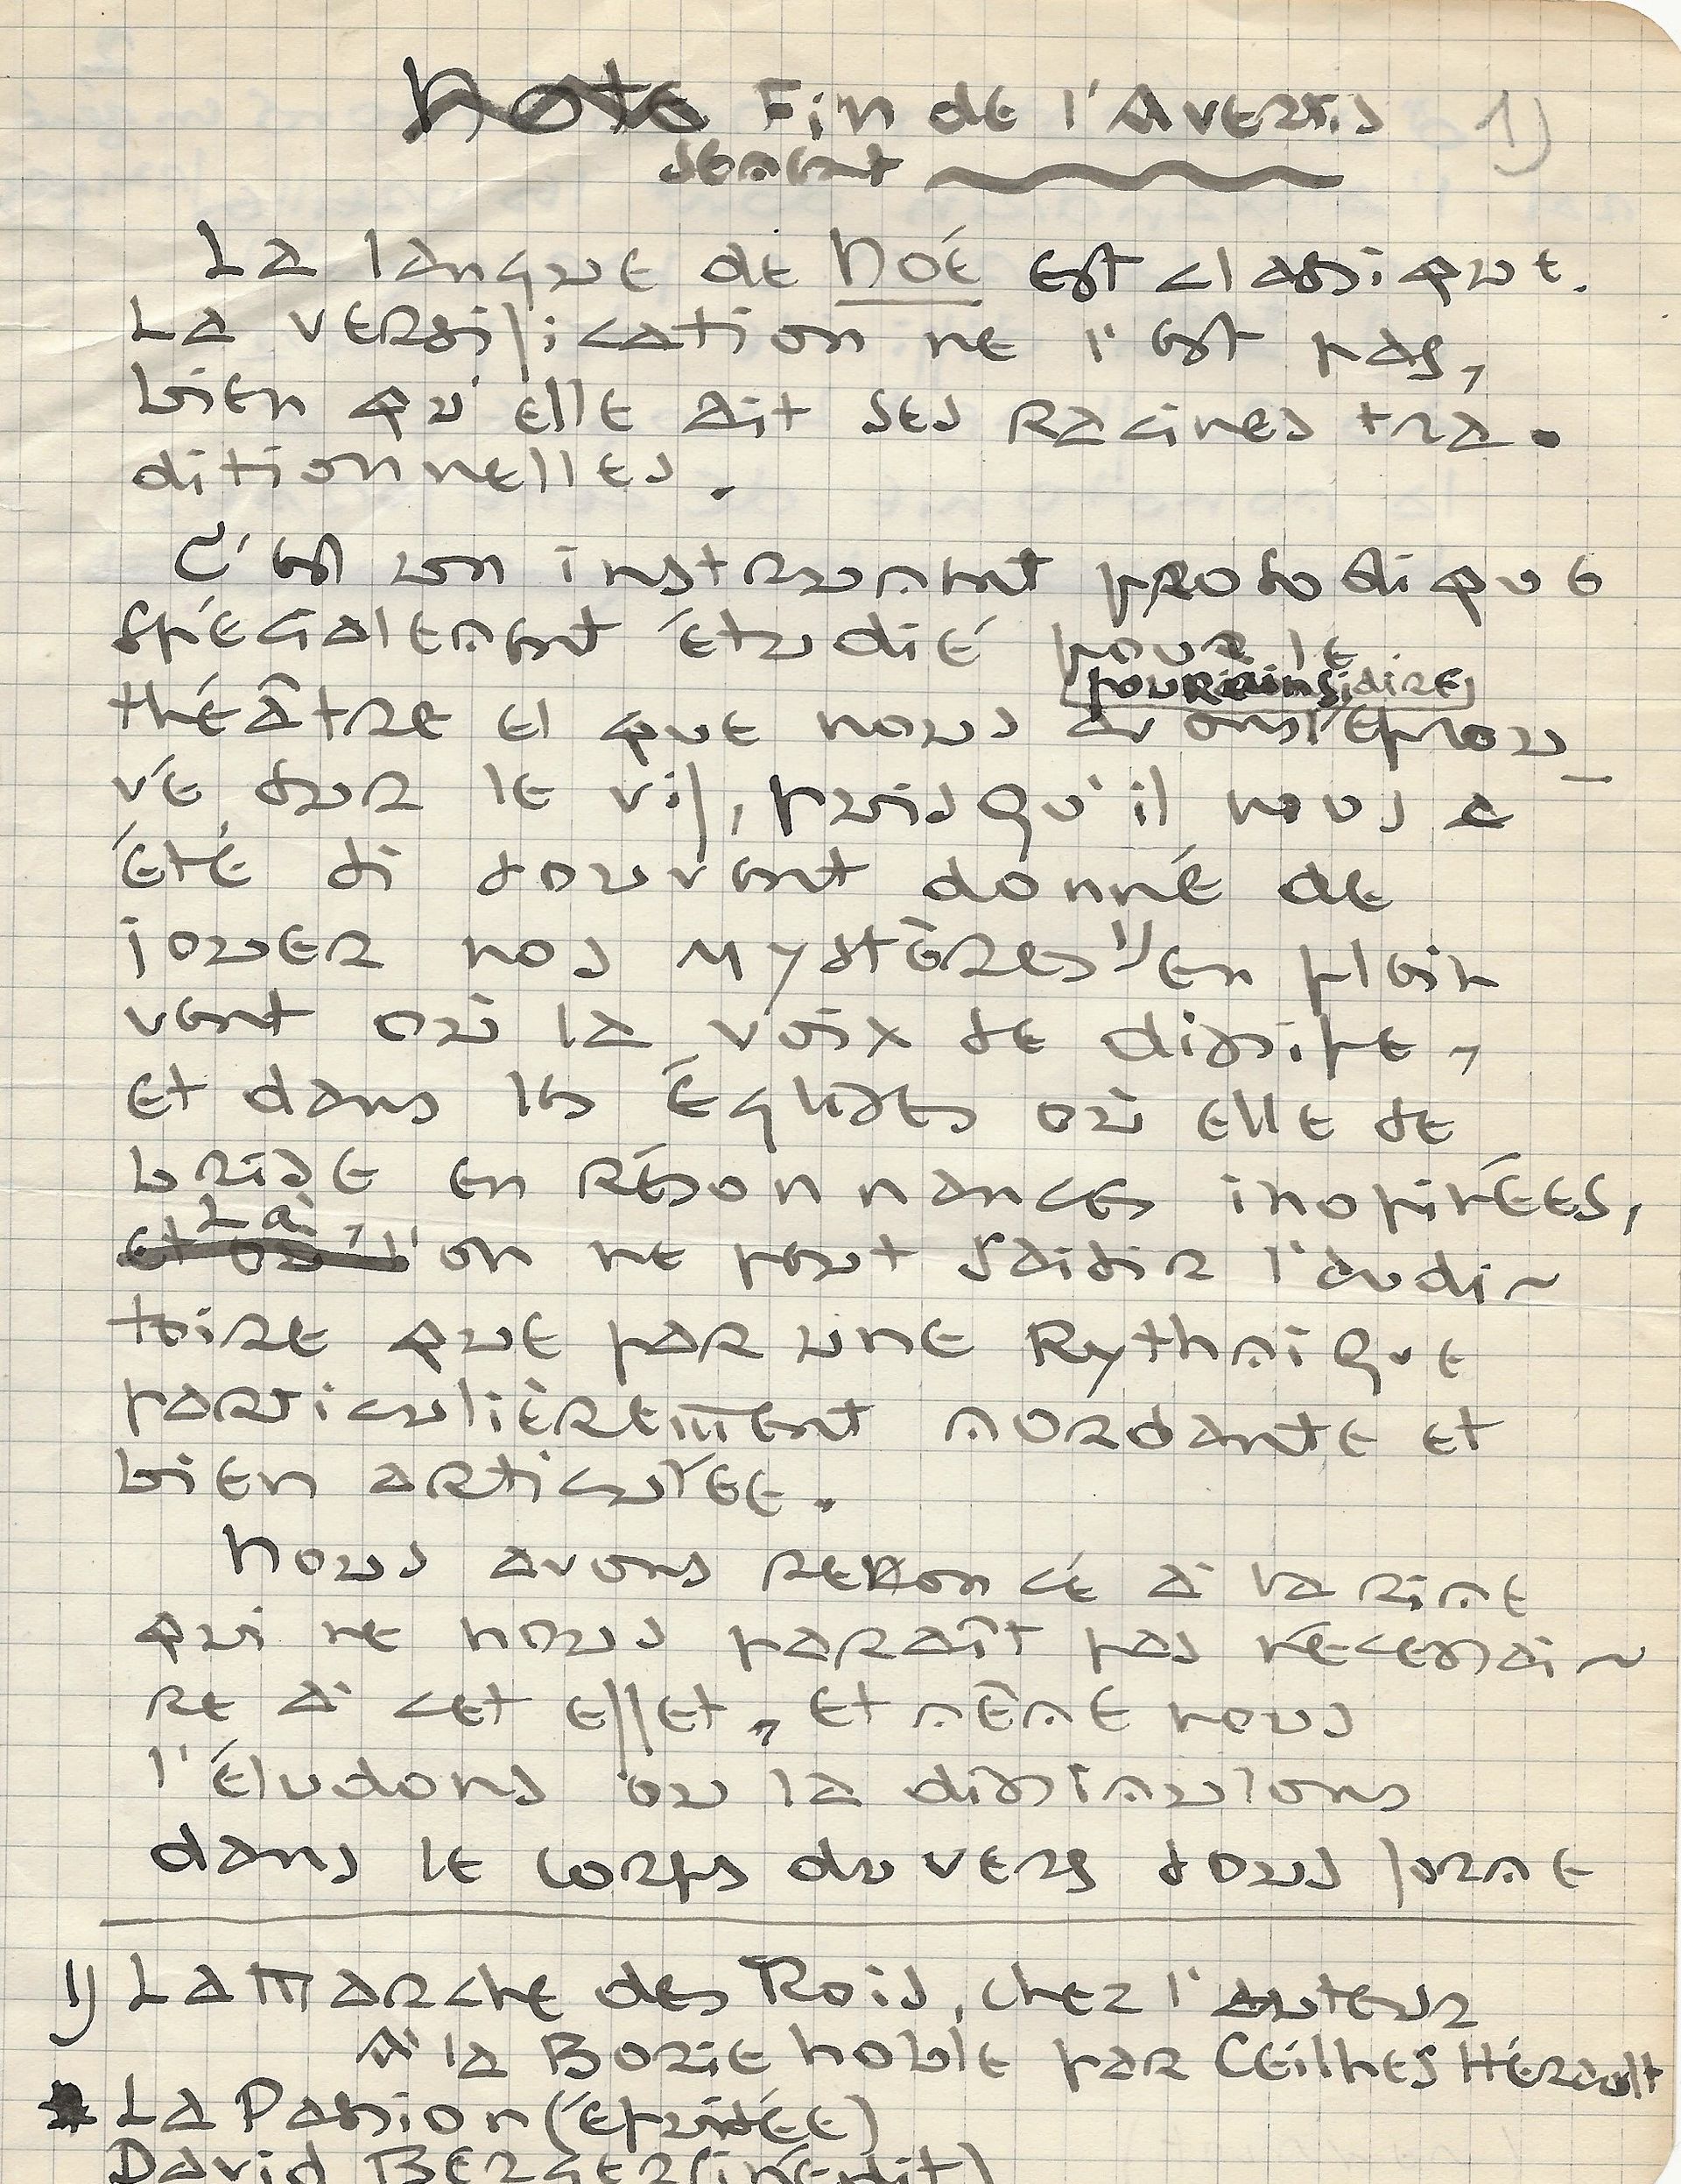 Note Fin de l'Avertis 1)
sement
La langue de Noé est classique.
La versification ne l'est pas,
bien qu'elle ait ses racines tra-
ditionnelles.
C'est un instrument prosodique
spécialement étudié pour le
pour ainsi dire
théâtre et que nous avons éprou_
vé sur le vif, puisqu'il nous a
été si souvent donné de
jouer nos Mystères 1) en plein
vent où la voix se dissipe,
et dans les Églises où elle se
brise en résonnances inopinées,
Là,
et où l'on ne peut saisir l'audi-
toire que par une Rythmique
particulièrement mordante et
bien articulée.
Nous avons renoncé à la rime
qui ne nous paraît pas nécessai-
re à cet effet, et même nous
l'éludons ou la dissimulons
dans le corps du vers sous forme
1) La Marche des Rois, chez l'auteur
A la Borie Noble par Ceilhes Hérault
La Passion (épuisée)
David Berger (inédit)